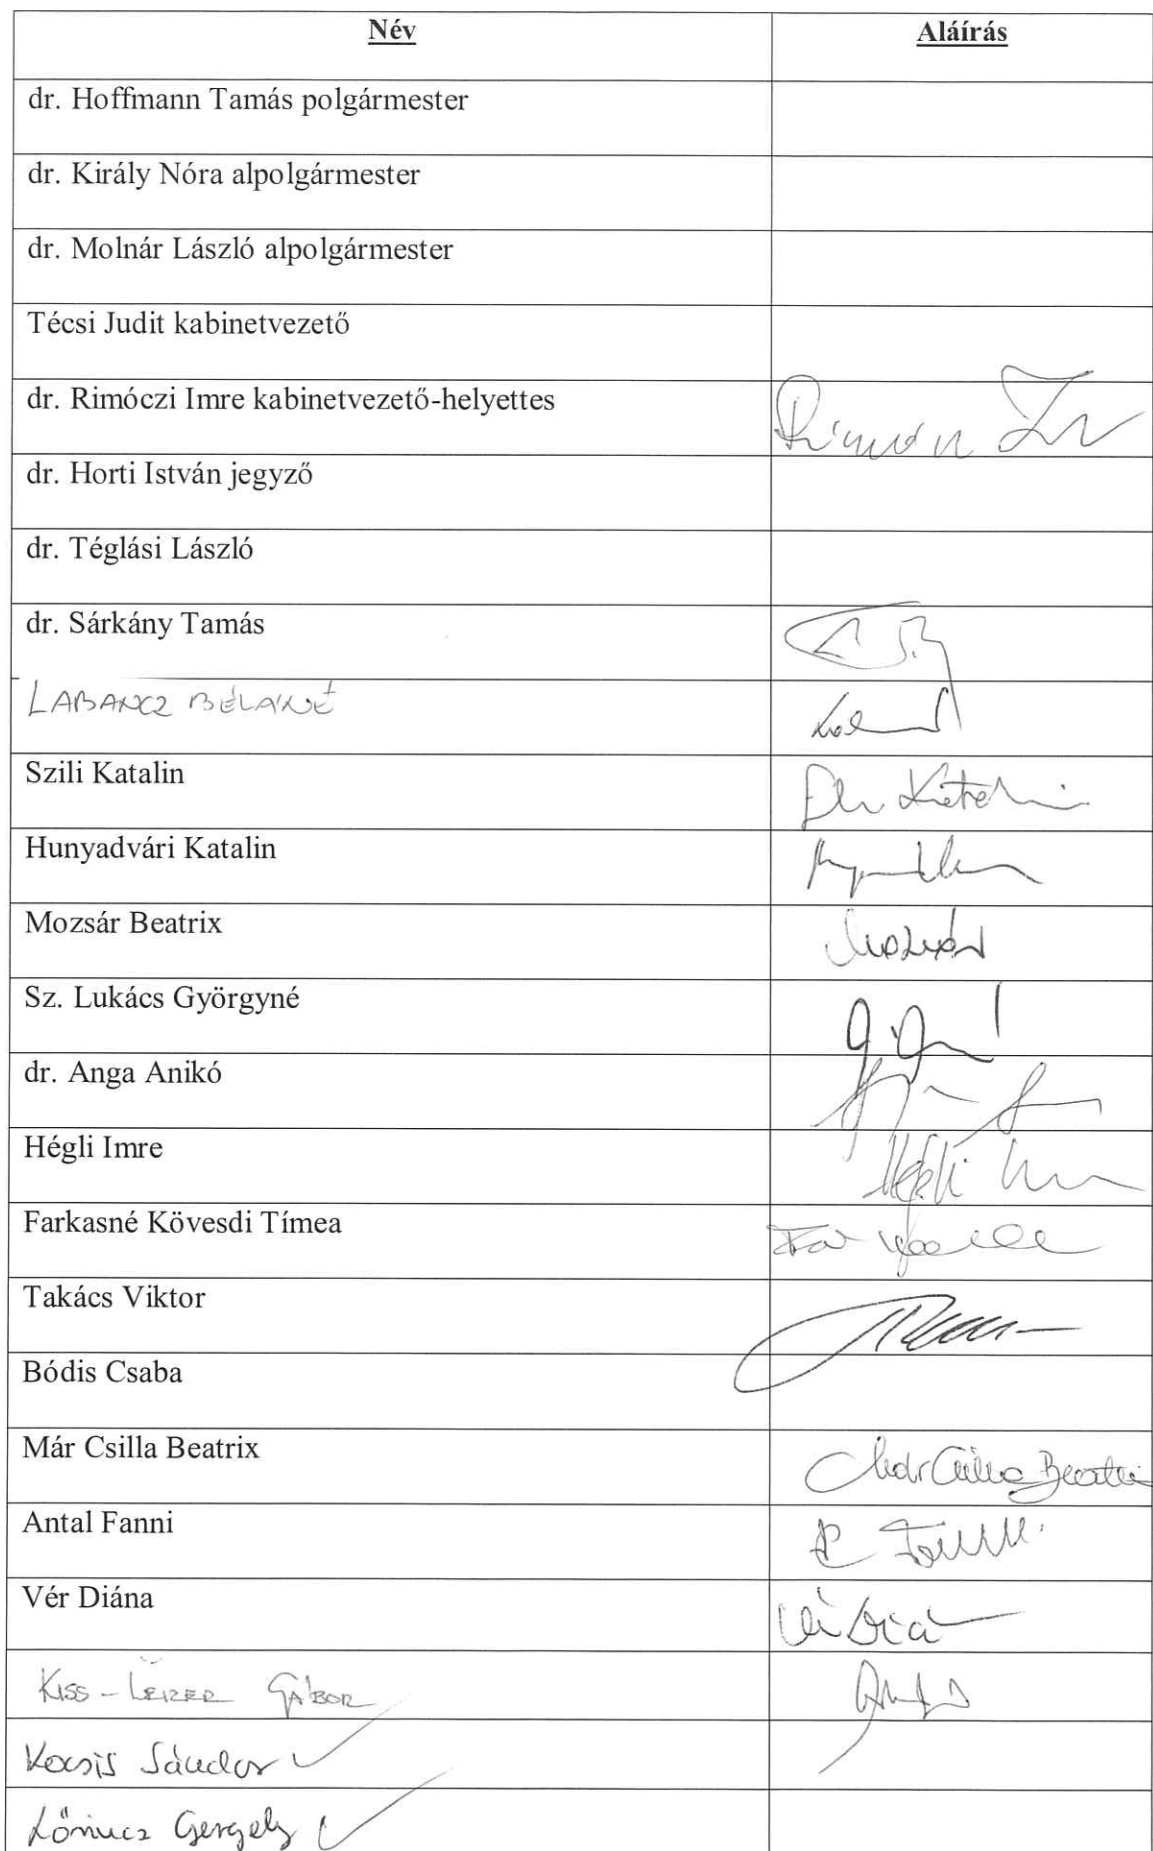 Név Aláírás
dr. Hoffmann Tamás polgármester
dr. Király Nóra alpolgármester
dr. Molnár László alpolgármester
Técsi Judit kabinetvezető
dr. Rimóczi Imre kabinetvezető-helyettes
dr. Horti István jegyző
dr. Téglási László
dr. Sárkány Tamás
LABANCZ BÉLÁNÉ
Szili Katalin
Hunyadvári Katalin
Mozsár Beatrix
Sz. Lukács Györgyné
dr. Anga Anikó
Hégli Imre
Farkasné Kövesdi Tímea
Takács Viktor
Bódis Csaba
Már Csilla Beatrix Már Csilla Beatrix
Antal Fanni
Vér Diána
KISS-LEIZER GÁBOR
Kocsis Sándor
Lőrincz Gergely